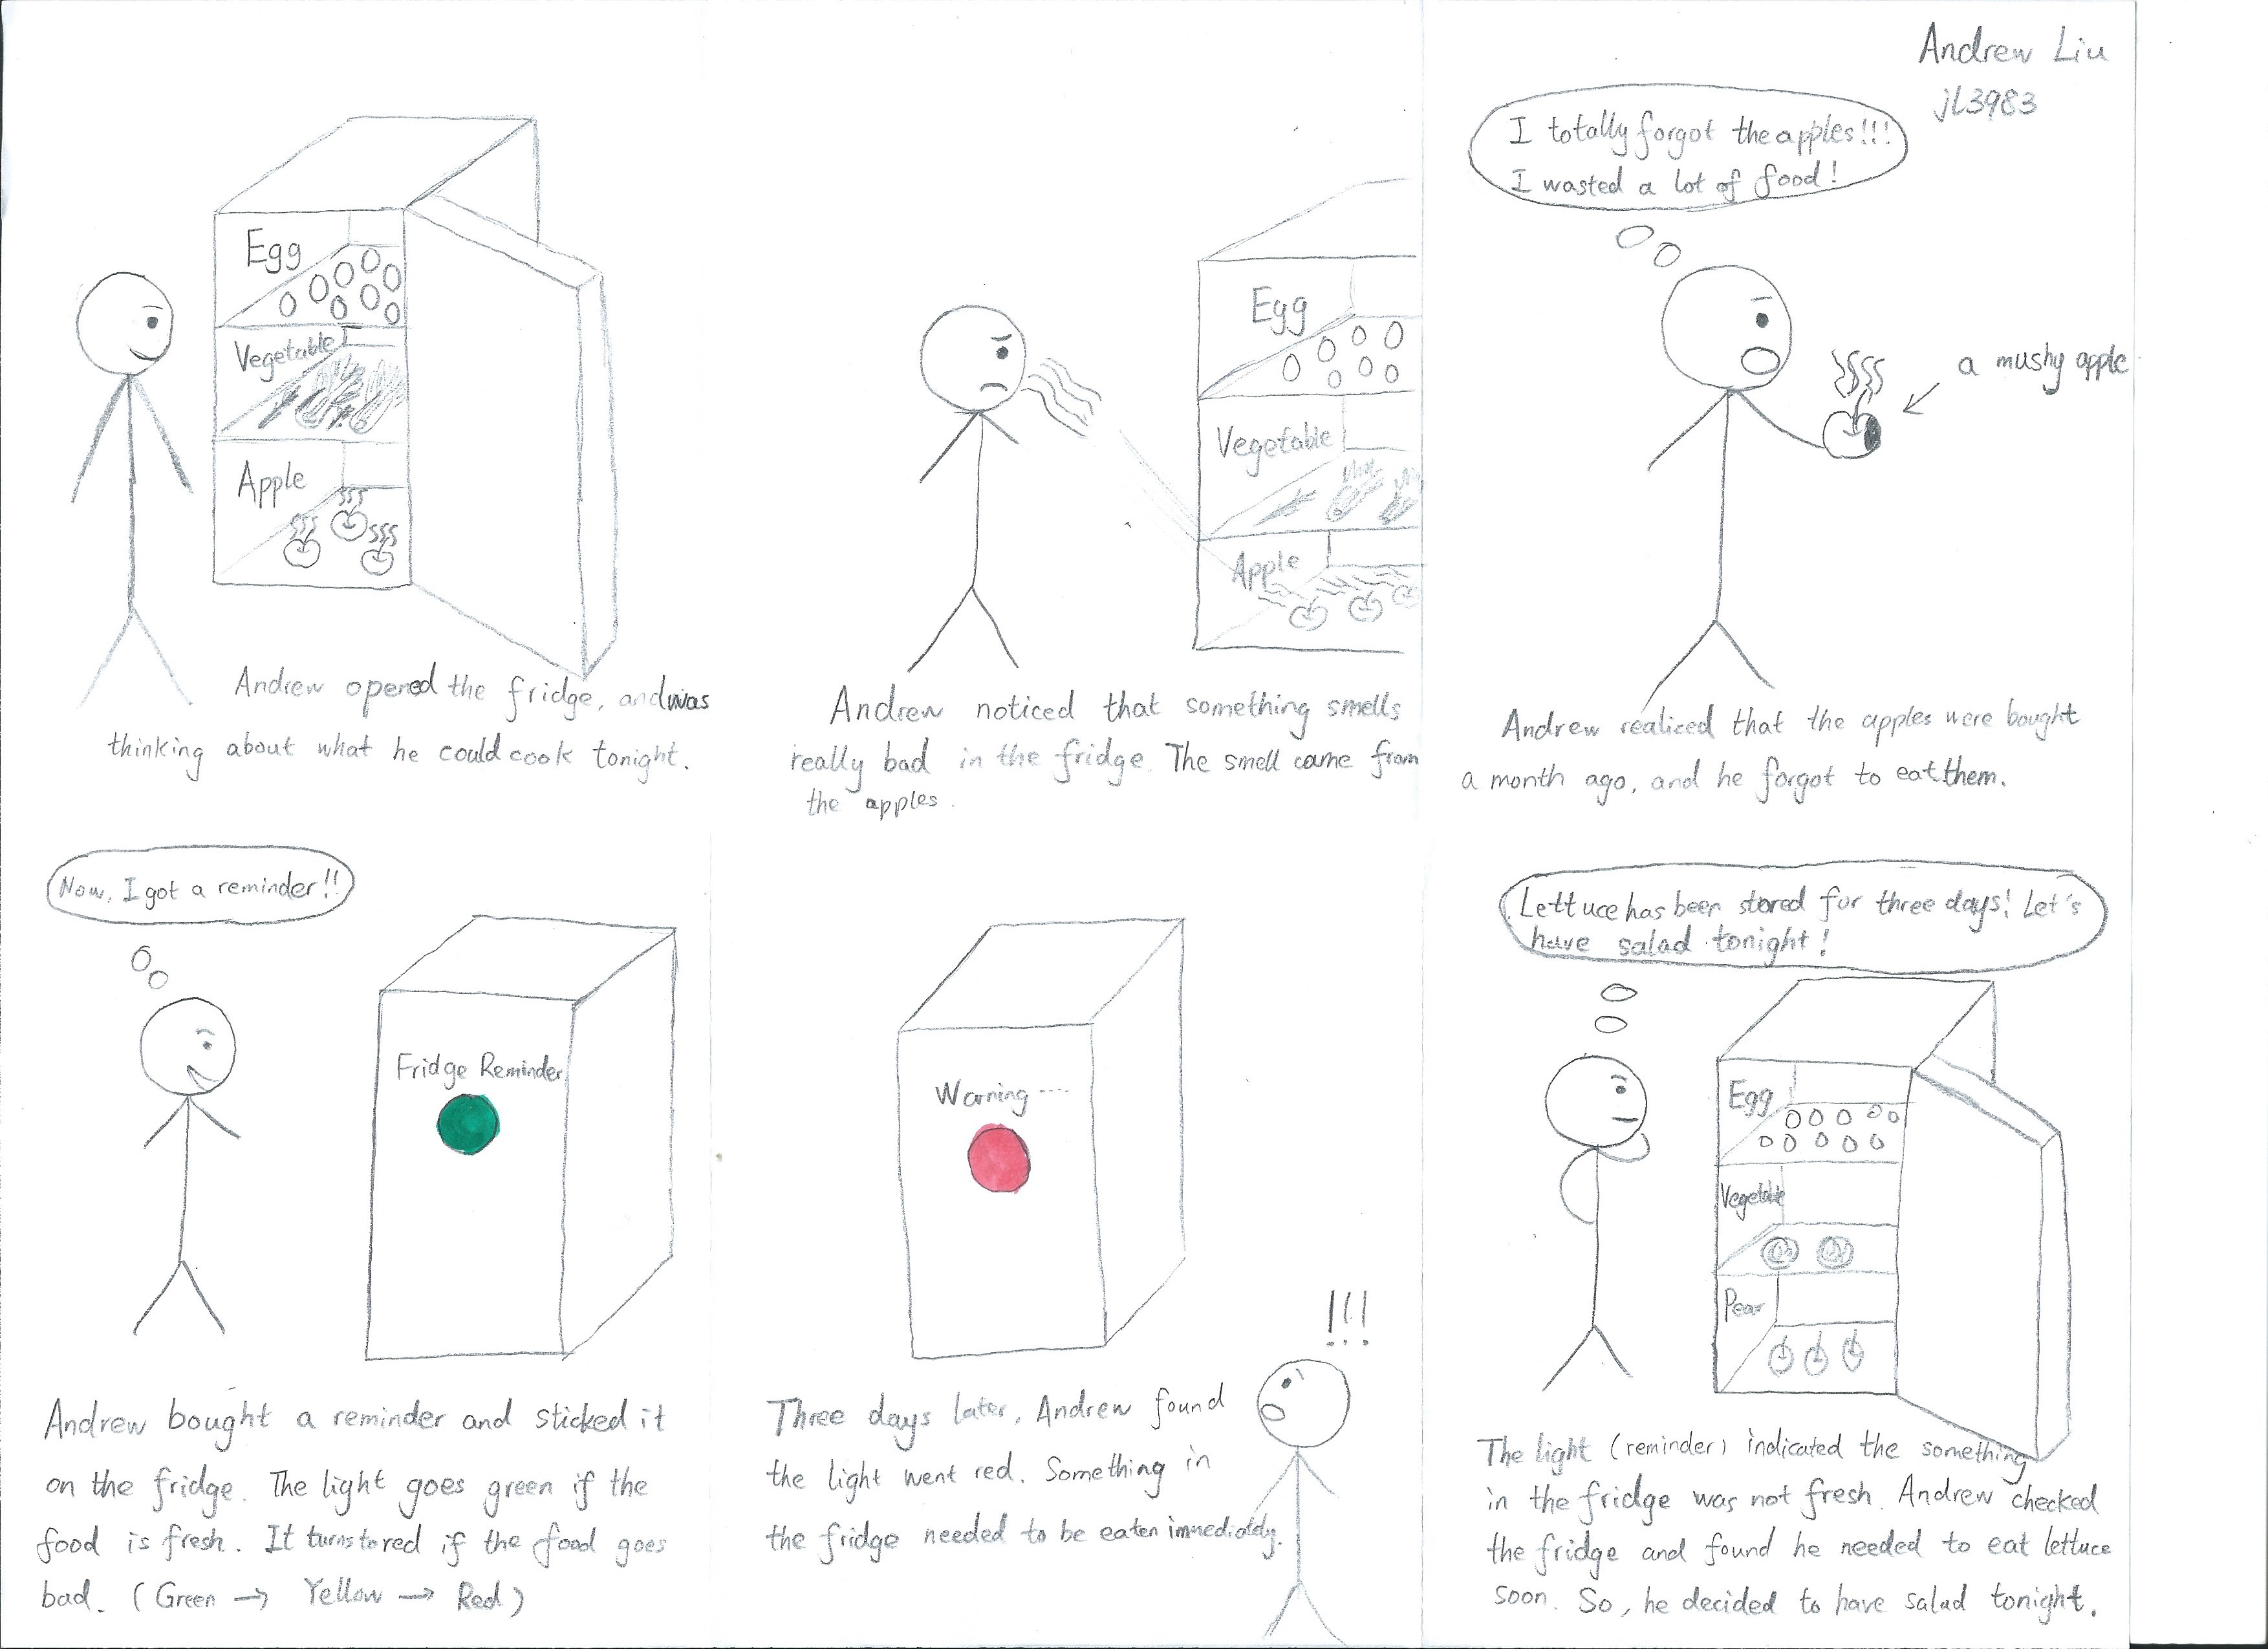 Andrew Liu
jL3983
Egg
Vegetable
Apple
Andrew opened the fridge, and was
thinking about what he could cook tonight.
Egg
Vegetable
Apple
Andrew noticed that something smells
really bad in the fridge. The smell came from
the apples.
I totally forgot the apples!!!
I wasted a lot of food!
a mushy apple
Andrew realized that the apples were bought
a month ago, and he forgot to eat them.
Now, I got a reminder!!
Fridge Reminder
Andrew bought a reminder and sticked it
on the fridge. The light goes green if the
food is fresh. It turns to red if the food goes
bad. (Green → Yellow → Red)
Warning ----
!!!
Three days later, Andrew found
the light went red. Something in
the fridge needed to be eaten immediately.
Lettuce has been stored for three days! Let's
have salad tonight!
Egg
Vegetable
Pear
The light (reminder) indicated the something
in the fridge was not fresh. Andrew checked
the fridge and found he needed to eat lettuce
soon. So, he decided to have salad tonight.